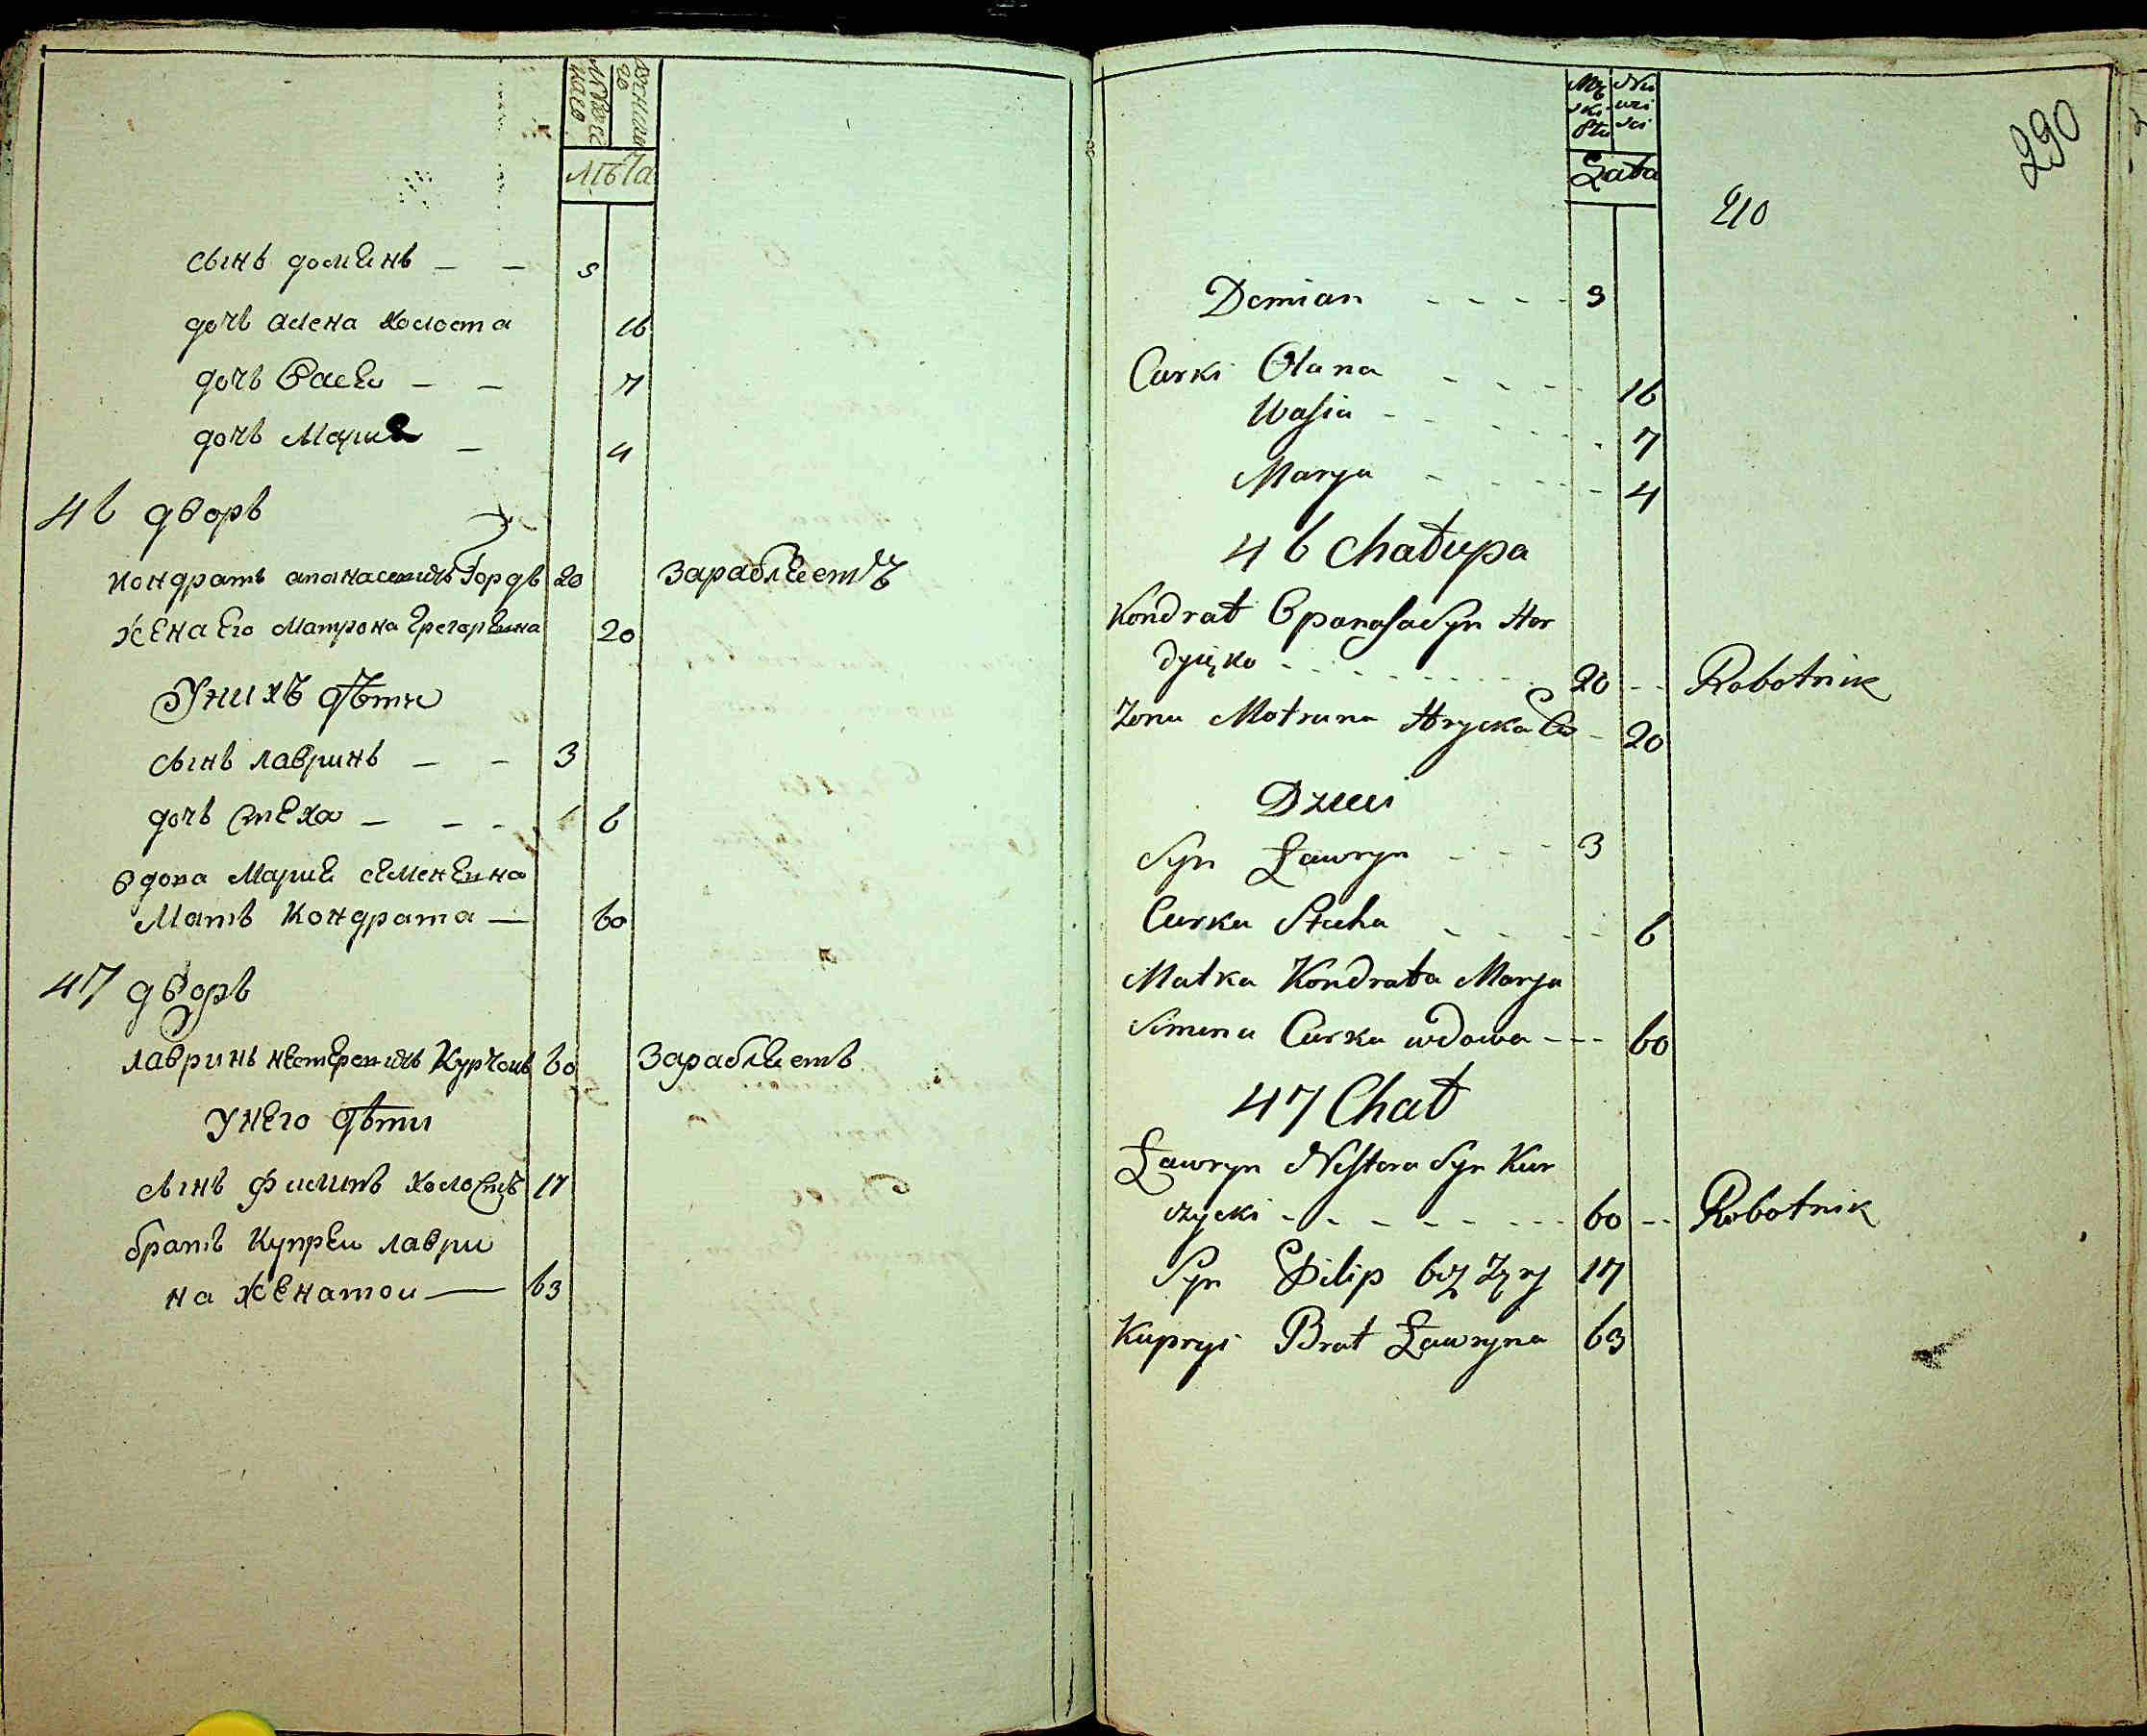 мужеска
го
женска
го
лѣта
сынъ доминъ — — 9
дочь алена холоста 16
дочь Васка — — 7
дочь Марие — 4
46 дворъ
кондратъ апанасенинъ Гордѣ 20 Зараблеетъ
жена Его Матрона Грегоревна 20
Унихъ дѣти
сынъ лавринъ — — 3
дочь Стеха — — - 6
вдова Марие семеневна
Мать Кондрата — 60
47 дворъ
лавринъ нестеренинъ Курчои 60 Зараблеетъ
Унего дѣти
сынъ филипъ холостъ 17
братъ Купреи лаври
на женатои — 63
290
210
Łata
Demian - - - - 9
Curki Olana - - - - 16
Wasia - - - - 7
Marya - - - - 4
46 Chałupa
Kondrat Opanasa Syn Hor
- - - - 20 - - Robotnik
Zona Motruna Hrycka Co - 20
Dzieci
Syn Ławryn - - - 3
Curka Stecha - - - - 6
Matka Kondrata Marya
Simena Curka wdowa - - - 60
47 Chał
Ławryn Nestera Syn Kur
czycki - - - - - - - 60 - - Robotnik
Syn Filip bez Zony 17
Kupryi Brat Ławryna 63